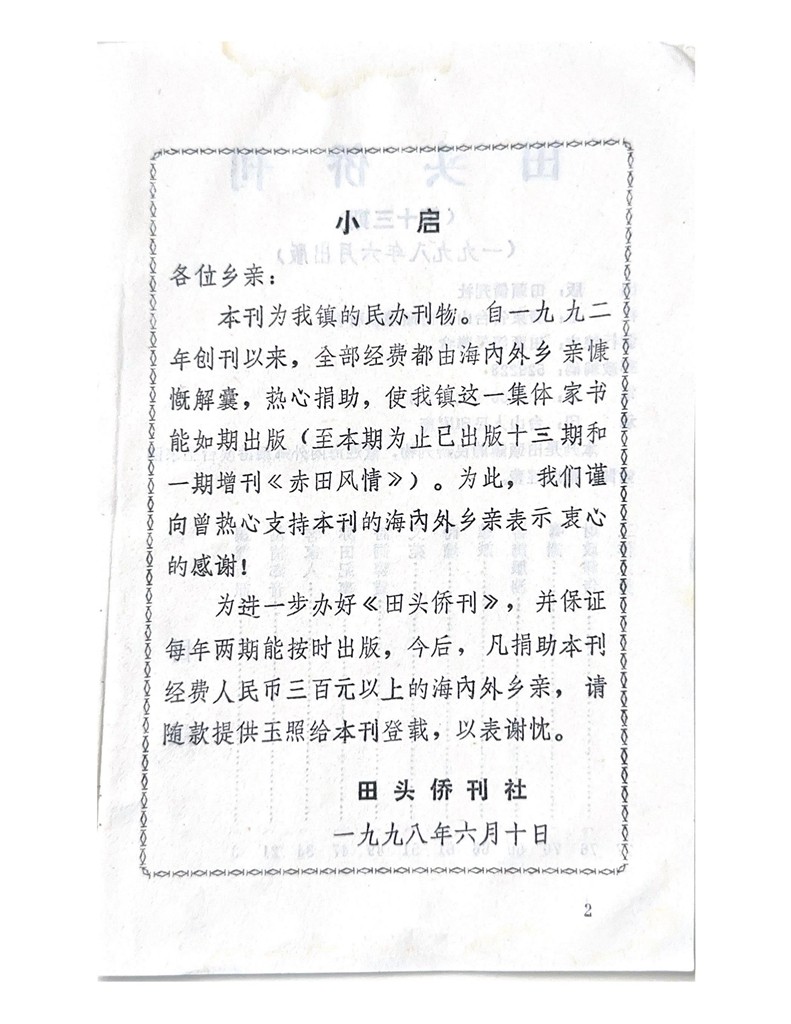 小 启
各位乡亲：
本刊为我镇的民办刊物。自一九九二
年创刊以来，全部经费都由海内外乡亲慷
慨解囊，热心捐助，使我镇这一集体家书
能如期出版（至本期为止已出版十三期和
一期增刊《赤田风情》）。为此，我们谨
向曾热心支持本刊的海内外乡亲表示衷心
的感谢！
为进一步办好《田头侨刊》，并保证
每年两期能按时出版，今后，凡捐助本刊
经费人民币三百元以上的海内外乡亲，请
随款提供玉照给本刊登载，以表谢忱。
田头侨刊社
一九九八年六月十日
2